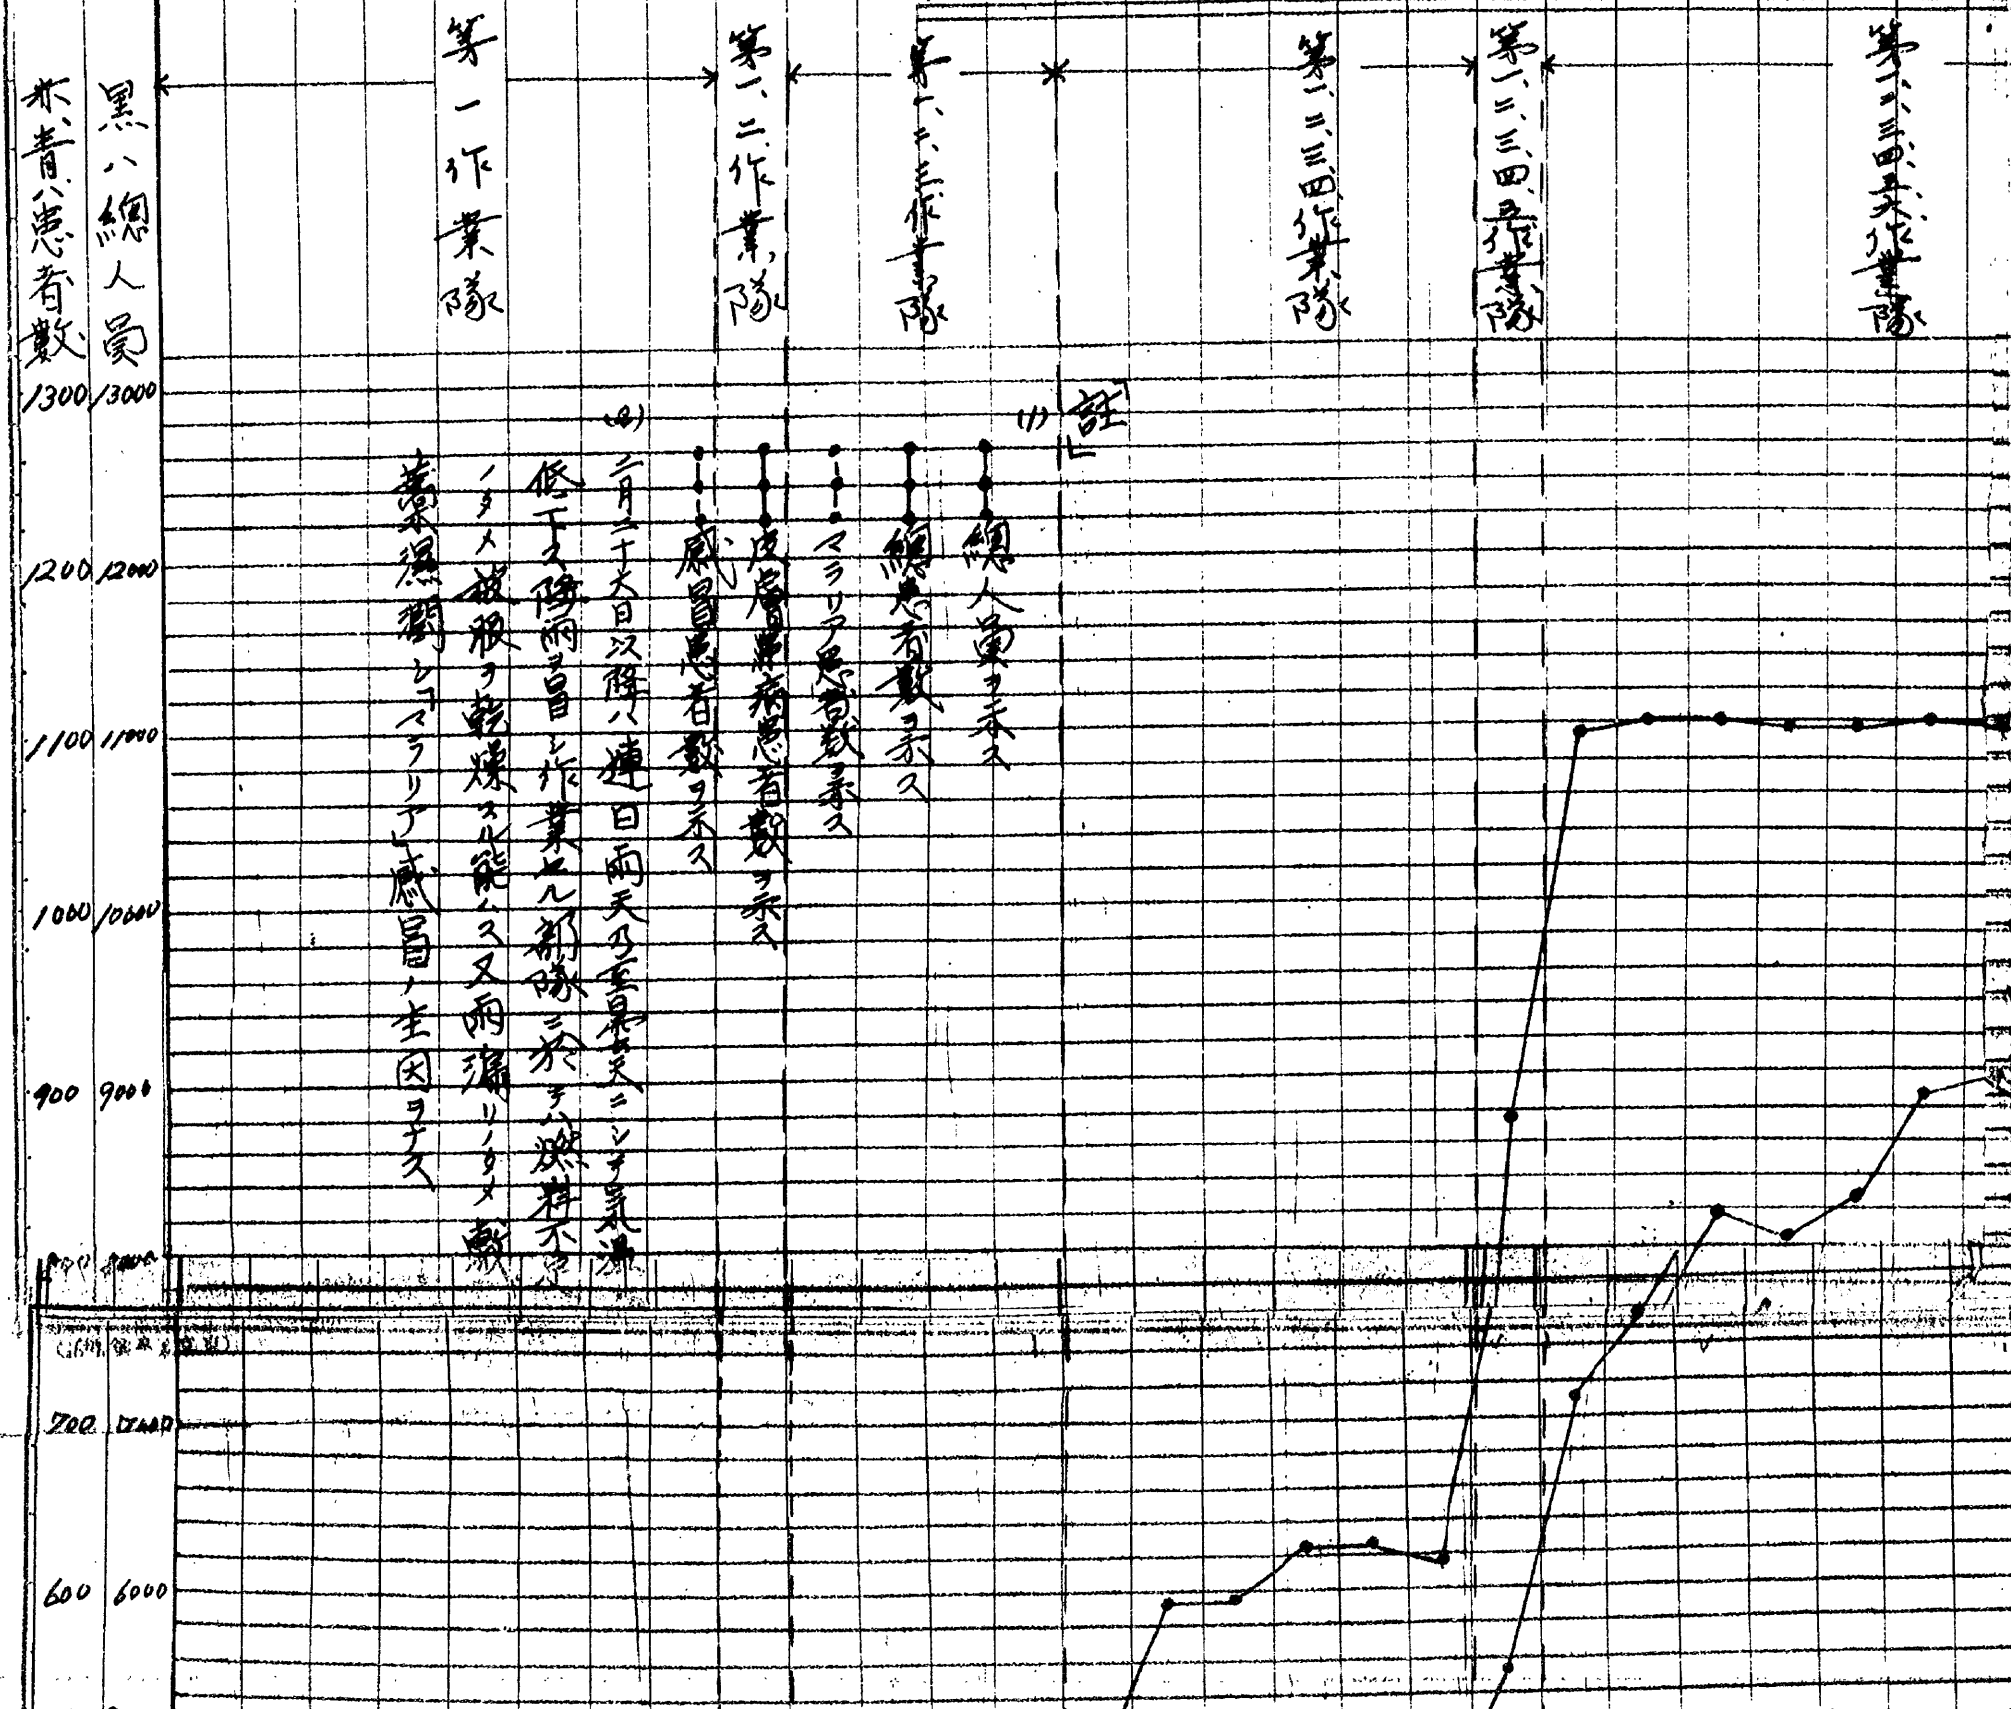 第一、二、三、四、五、六作業隊
第一、二、三、四、五作業隊
第一、二、三、四、作業隊
第一、二、三、作業隊
第一、二、作業隊
第一作業隊
黒ハ總人員
赤、青ハ患者數
「註」
(1)
總人員ヲ示ス
總患者數ヲ示ス
マラリア患者數ヲ示ス
皮膚病患者數ヲ示ス
感冒患者數ヲ示ス
(2)
二月二十六日以降ハ連日雨天乃至曇天ニシテ氣温
低下ス降雨ヲ冒シ作業セル部隊ニ於テハ燃料不足
ノタメ被服ヲ乾燥スル能ハス又雨漏リノタメ
藁濕潤シ「マラリア」感冒ノ主因ヲナス
1300 13000
1200 12000
1100 11000
1000 10000
900 9000
800 8000
700 7000
600 6000